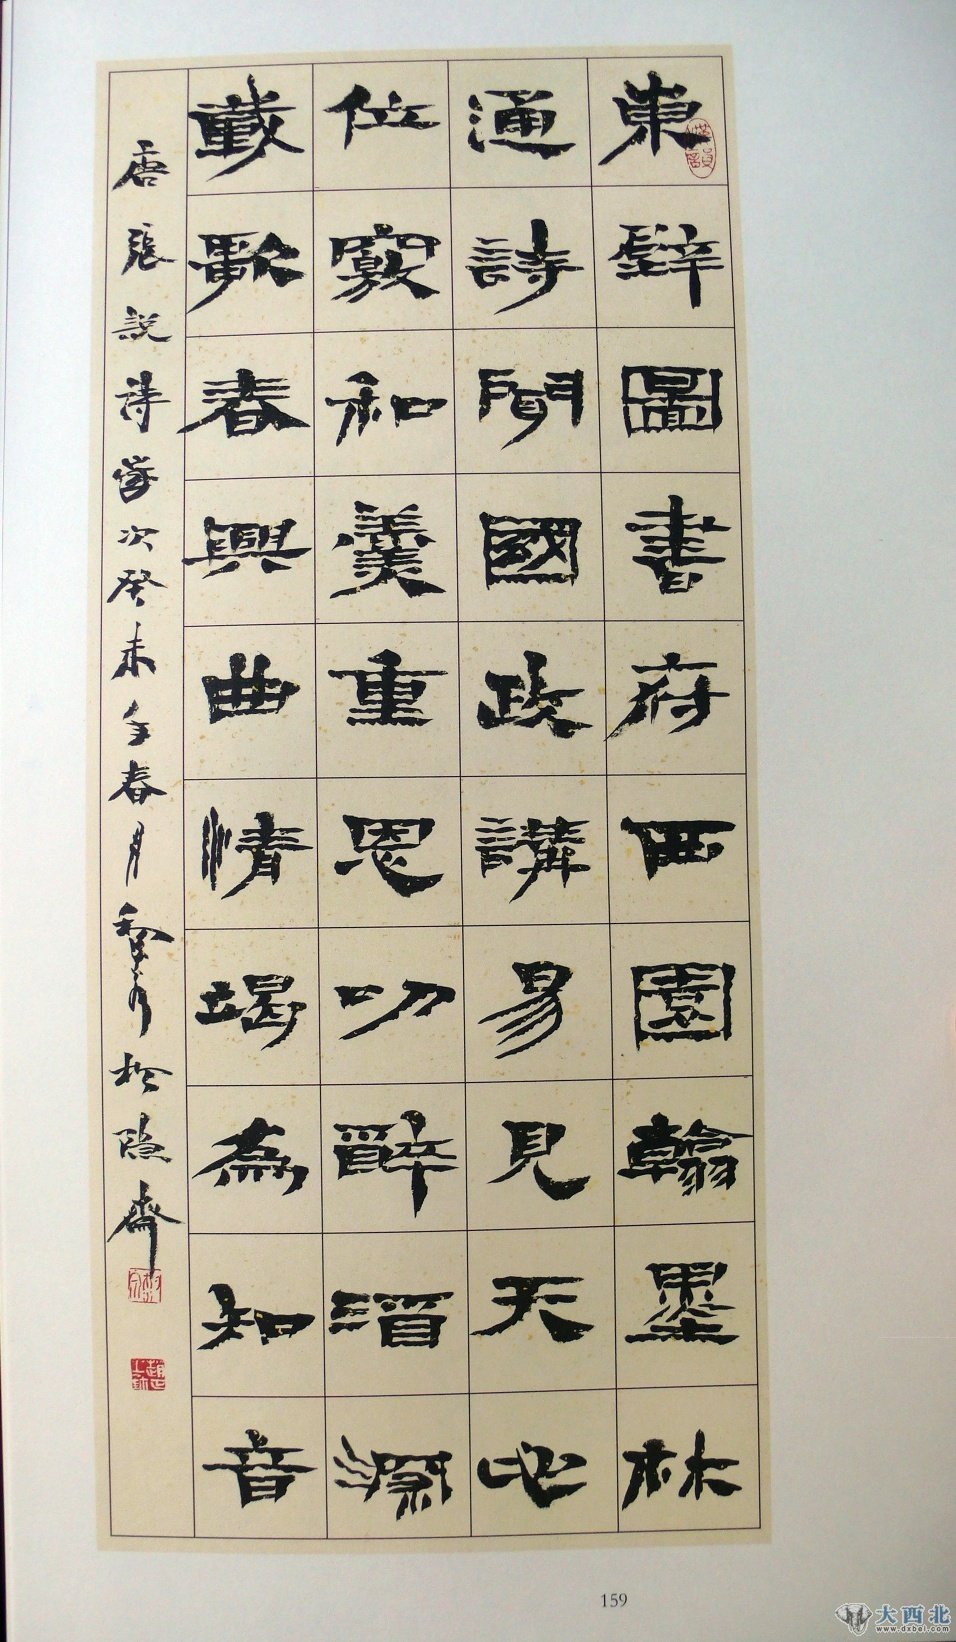 東壁圖書府西園翰墨林
通詩聞國政講易見天心
位竅和羹重恩叨醉酒深
載歌春興曲情竭為知音
唐張說詩歲次癸未年春月黎泉松隱齋
159
大西北
www.dxbei.com